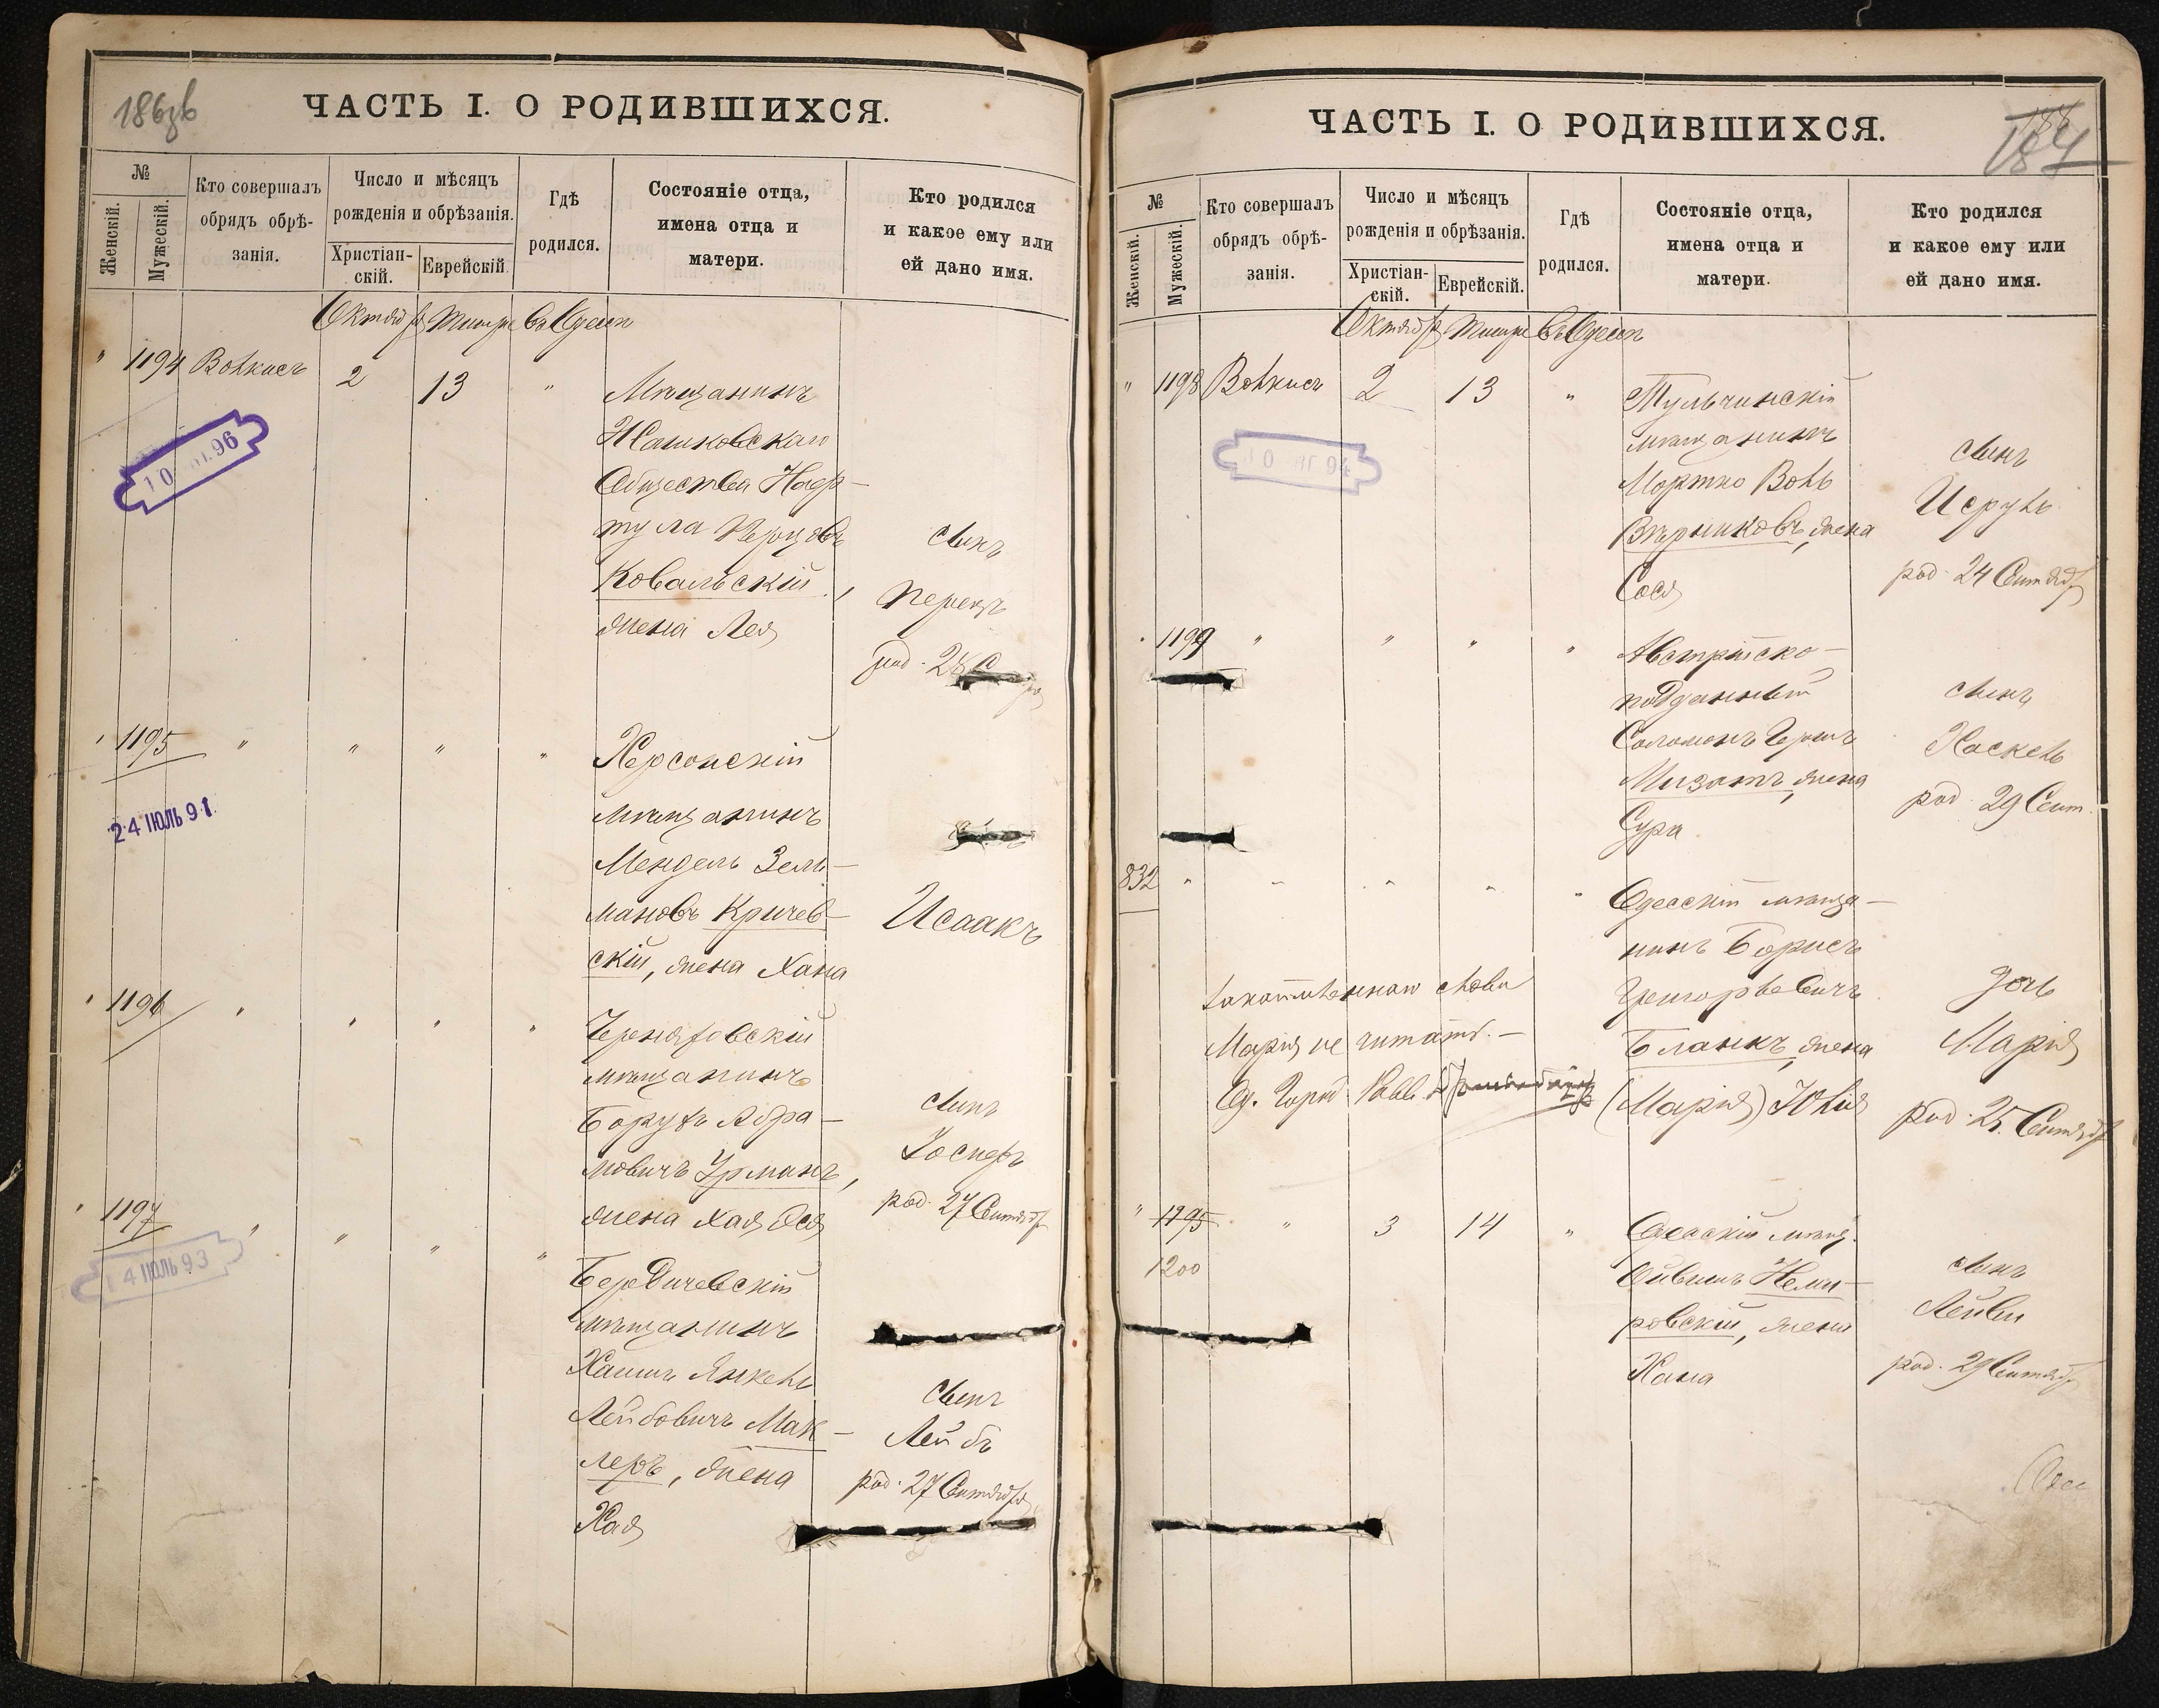 186зв
ЧАСТЬ I. О РОДИВШИХСЯ.
№
Женскій.
Мужескій.
Кто совершалъ
обрядъ обрѣ-
занія.
Число и мѣсяцъ
рожденія и обрѣзанія.
Христіан-
скій.
Еврейскій.
Гдѣ
родился.
Состояніе отца,
имена отца и
матери.
Кто родился
и какое ему или
ей дано имя.
Октября Тишри въ Одессѣ
" 1194 Волкисъ 2 13 "
Мѣщанинъ
Жашковскаго
Общества Наф-
тула Перцовъ
Ковальскій,
жена Лея
сынъ
Перецъ
род. 28
" 1195 " " " "
24 ІЮЛЬ 91
Херсонскій
мѣщанинъ
Мендель Зель-
мановъ Кричев-
скій, жена Хана
Исаакъ
" 1196 " " " "
Черняховскій
мѣщанинъ
Борухъ Абра-
мовичъ Урманъ,
жена Хая Еся
сынъ
Іосифъ
род. 27 Сентября
" 1197 " " " "
14 ІЮЛЬ 93
Бердичевскій
мѣщанинъ
Хаимъ Янкель
Лейбовичъ Мак-
леръ, жена
Хая
сынъ
Лейбъ
род. 27 Сентября
ЧАСТЬ I. О РОДИВШИХСЯ.
184
№
Женскій.
Мужескій.
Кто совершалъ
обрядъ обрѣ-
занія.
Число и мѣсяцъ
рожденія и обрѣзанія.
Христіан-
скій.
Еврейскій.
Гдѣ
родился.
Состояніе отца,
имена отца и
матери.
Кто родился
и какое ему или
ей дано имя.
Октября Тишри въ Одессѣ
" 1198 Волкисъ 2 13 "
Тульчинскій
мѣщанинъ
Мортко Воль
Вѣрниковъ, жена
Сося
сынъ
Исруль
род. 24 Сентября
" 1199 " " " "
Австрійско-
подданный
Соломонъ Гершъ
Мизатъ, жена
Сура
сынъ
Хаскель
род. 29 Сент.
832 " " " " "
Одесскій мѣща-
нинъ Борисъ
Григорьевичъ
Бланкъ, жена
(Марія) Юлія
дочь
Марія
род. 25 Сентября
слова
Марія не читать.
Од. Город. Равв.
" 1195 " 3 14 "
1200
Одесскій мѣщ.
Ойвишъ Неми-
ровскій, жена
Хана
сынъ
Лейви
род. 29 Сентября